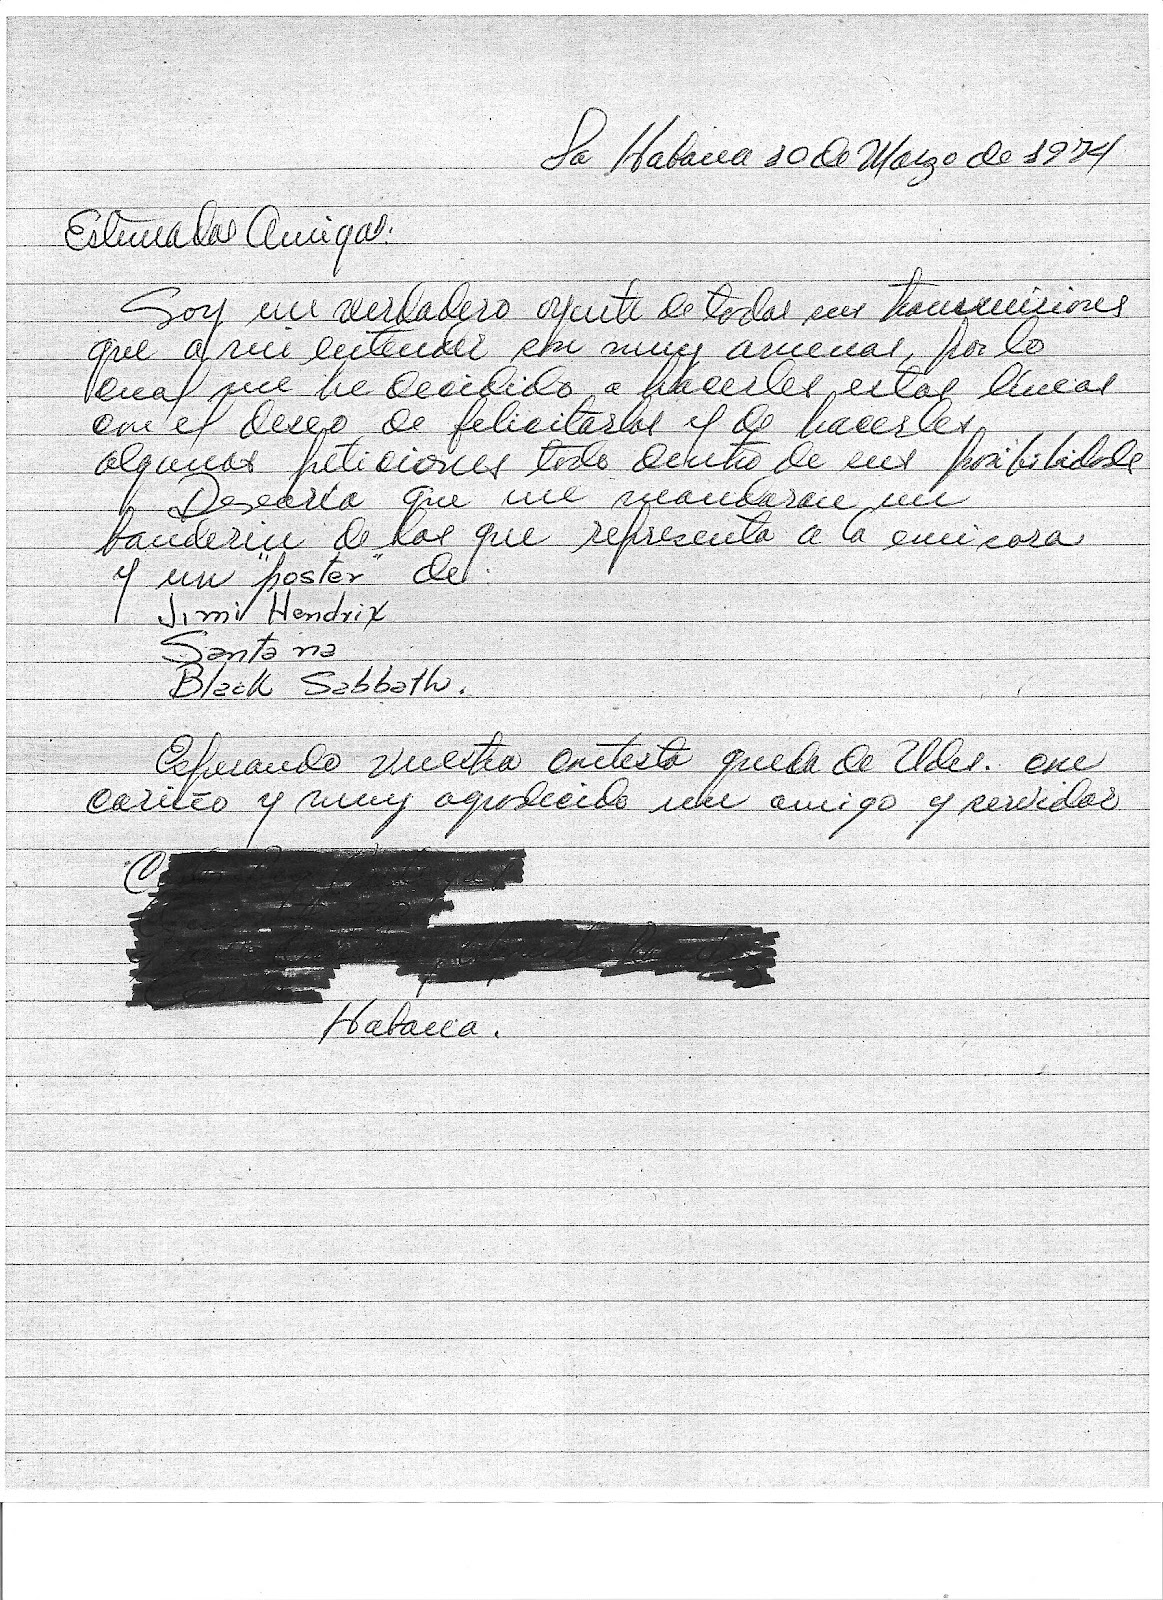 La Habana 10 de Marzo de 1974
Estimados Amigos:
Soy un verdadero oyente de todas sus transmisiones
que a mi entender son muy amenas, por lo
cual me he decidido a hacerles estas líneas
con el deseo de felicitarlos y de hacerles
algunas peticiones todo dentro de sus posibilidade
Desearía que me mandaran un
banderin de los que representa a la emisora
y un "poster" de:
Jimi Hendrix
Santana
Black Sabbath.
Esperando vuestra contesta queda de Udes. con
cariño y muy agradecido un amigo y servidor
Habana.